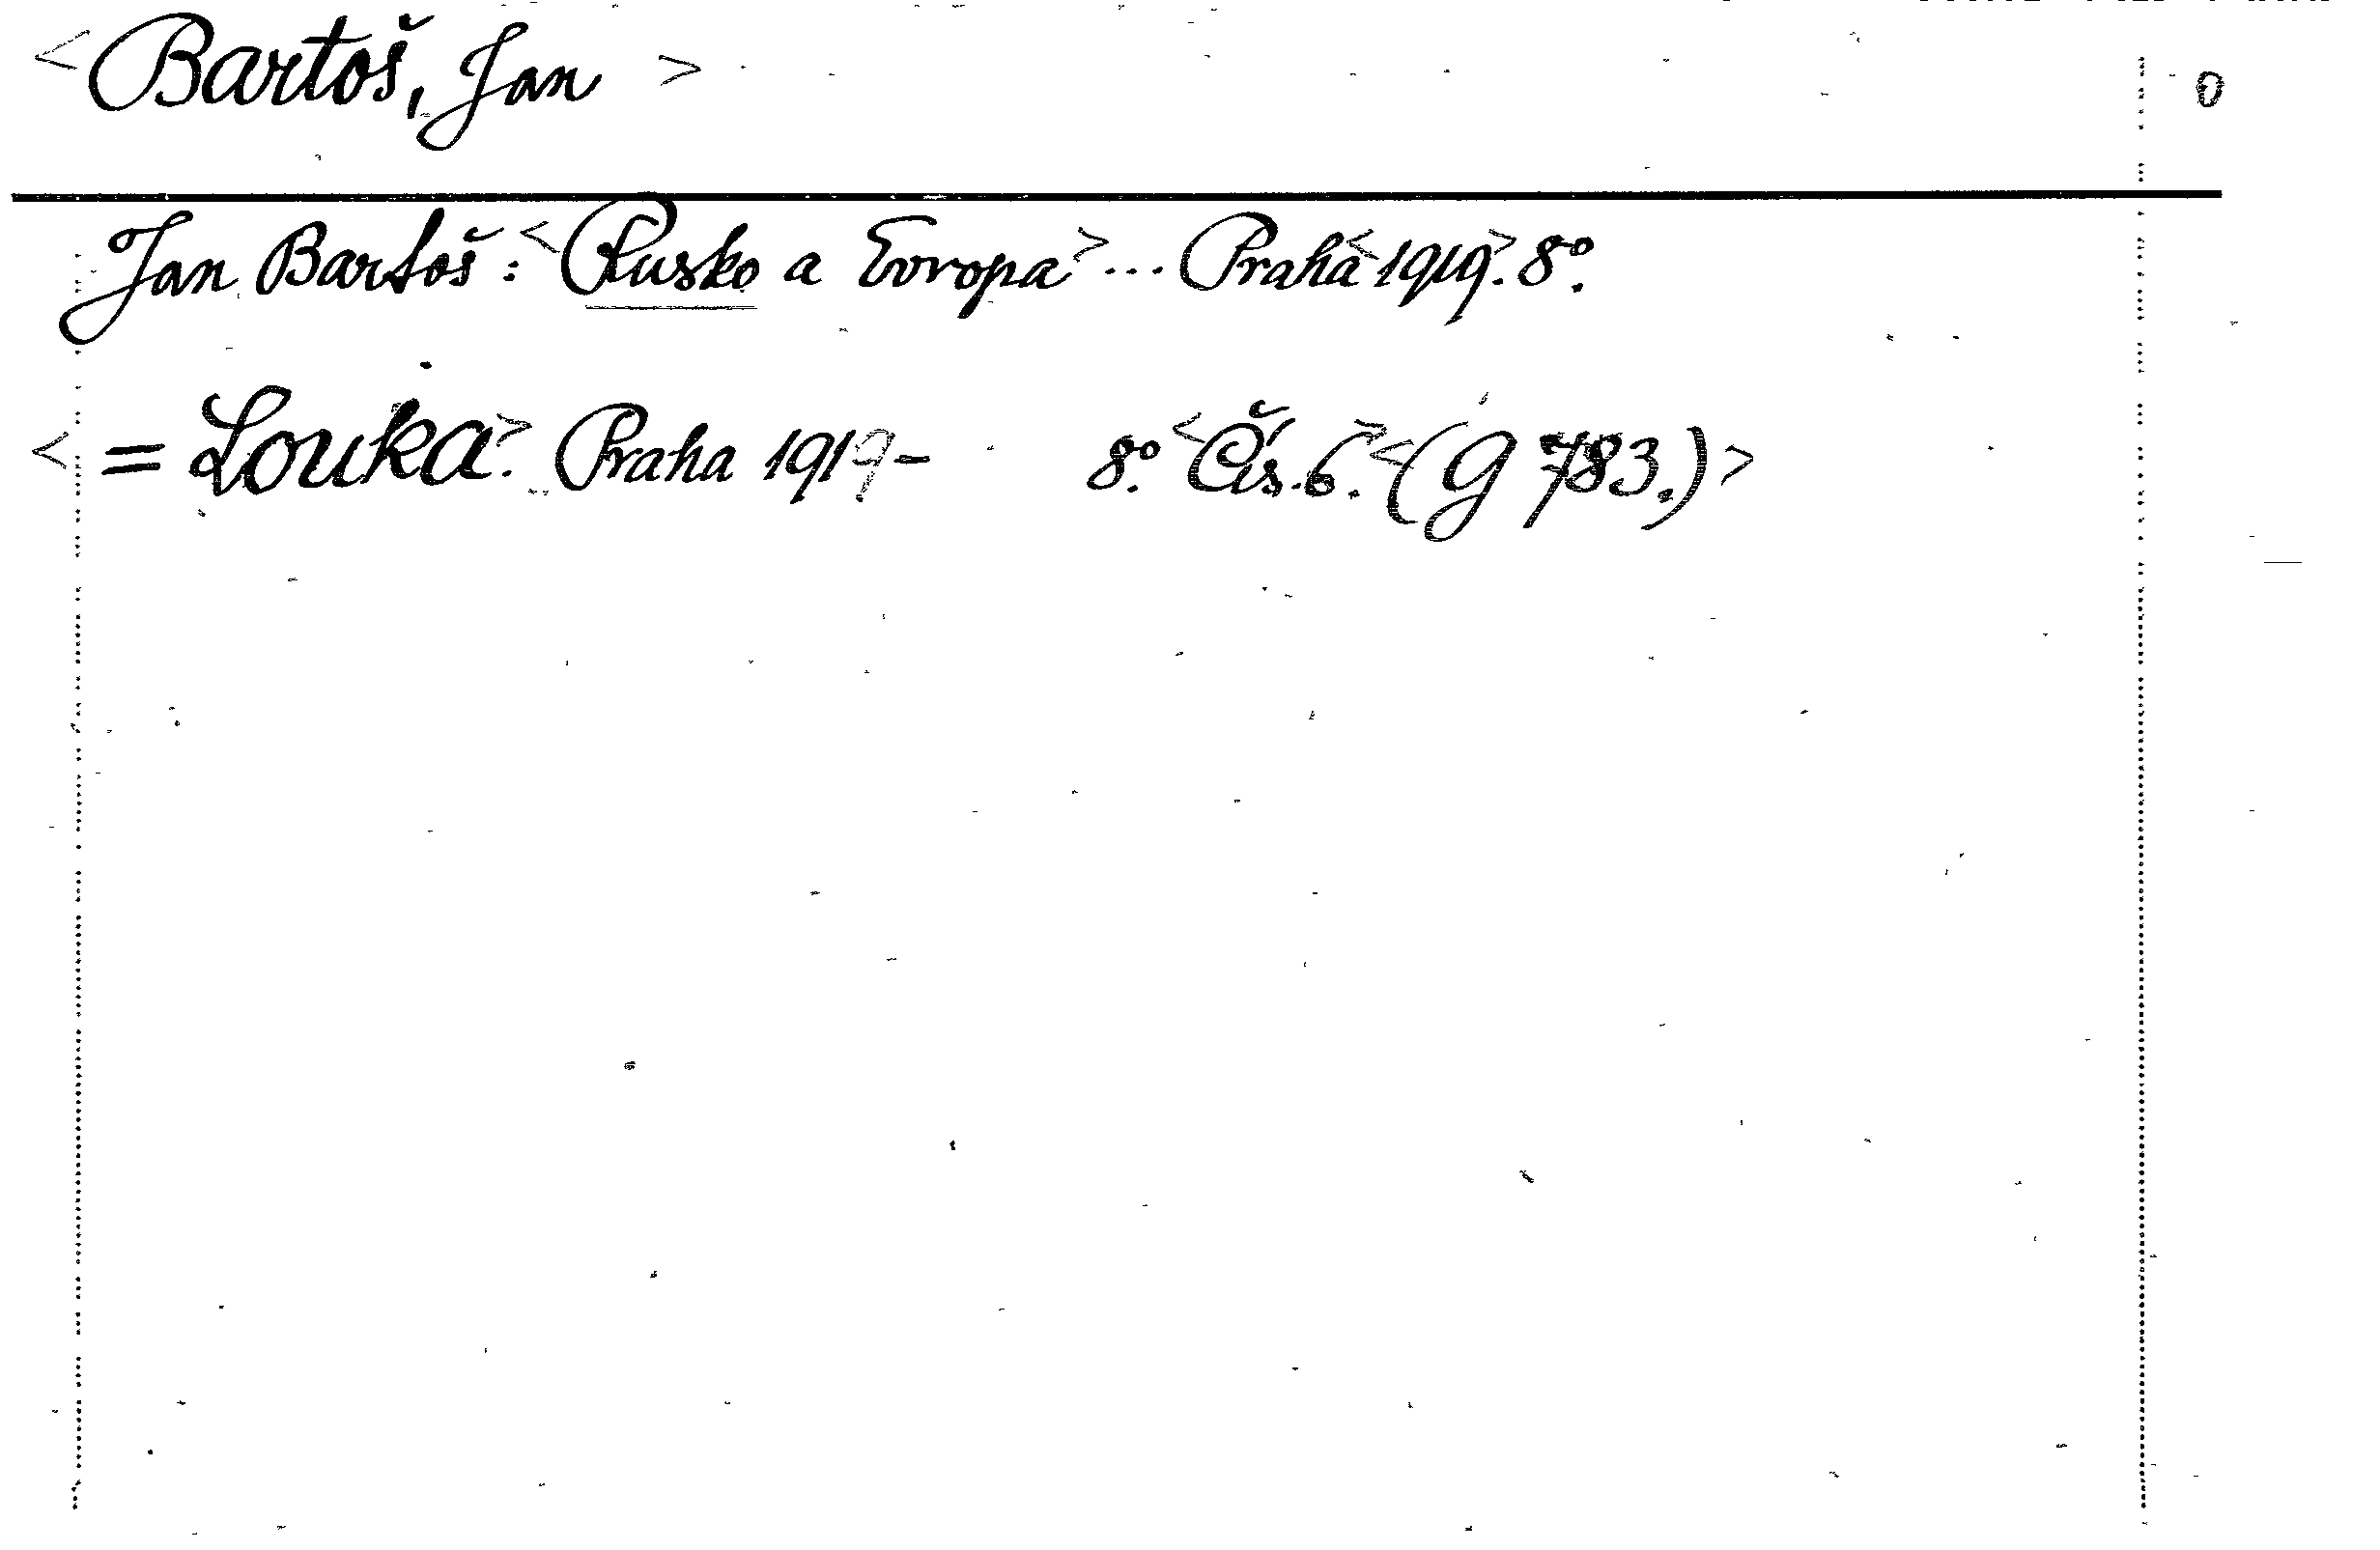 <Bartoš, Jan> 0
Jan Bartoš: <Rusko a Evropa> ... Praha <1919>. 8°.
<= Louka>. Praha 1919- 8°. <Čís. 6.> <(G 783.)>